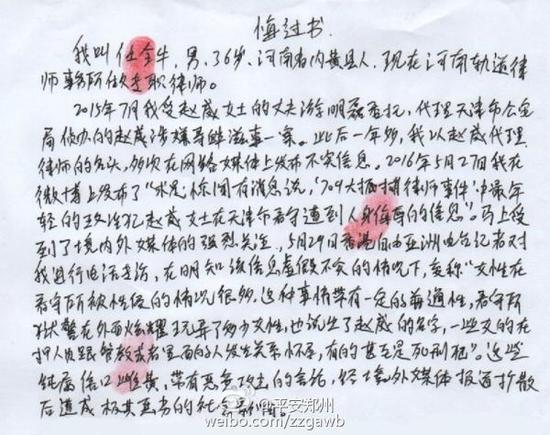 悔过书
我叫任全牛,男、36岁、河南省内黄县人,现在河南轨道律
师事务所做专职律师。
2015年7月我受赵威女士的丈夫游明磊委托,代理天津市公安
局侦办的赵威涉嫌寻衅滋事一案。此后一年多,我以赵威代理
律师的名头,多次在网络媒体上发布不实信息。2016年5月27日我在
微博上发布了“水儿:坊间有消息说,‘709大抓捕律师事件’中最年
轻的政治犯赵威女士在天津看守遭到人身侮辱的信息”。马上受
到了境内外媒体的强烈关注,5月29日香港自由亚洲电台记者对
我进行电话专访,在明知该信息虚假不实的情况下,妄称“女性在
看守所被性侵的情况很多。这种事情带有一定的普通性,看守所
狱警在外面炫耀玩弄了多少女性,也说出了赵威的名字,一些女的在
押人员跟管教或者里面的人发生关系怀孕,有的甚至是死刑犯”。这些
纯属信口雌黄,带有恶意攻击的言论,经境外媒体报道扩散
后造成极其恶劣的社会影响。
@平安郑州
weibo.com/zzgawb